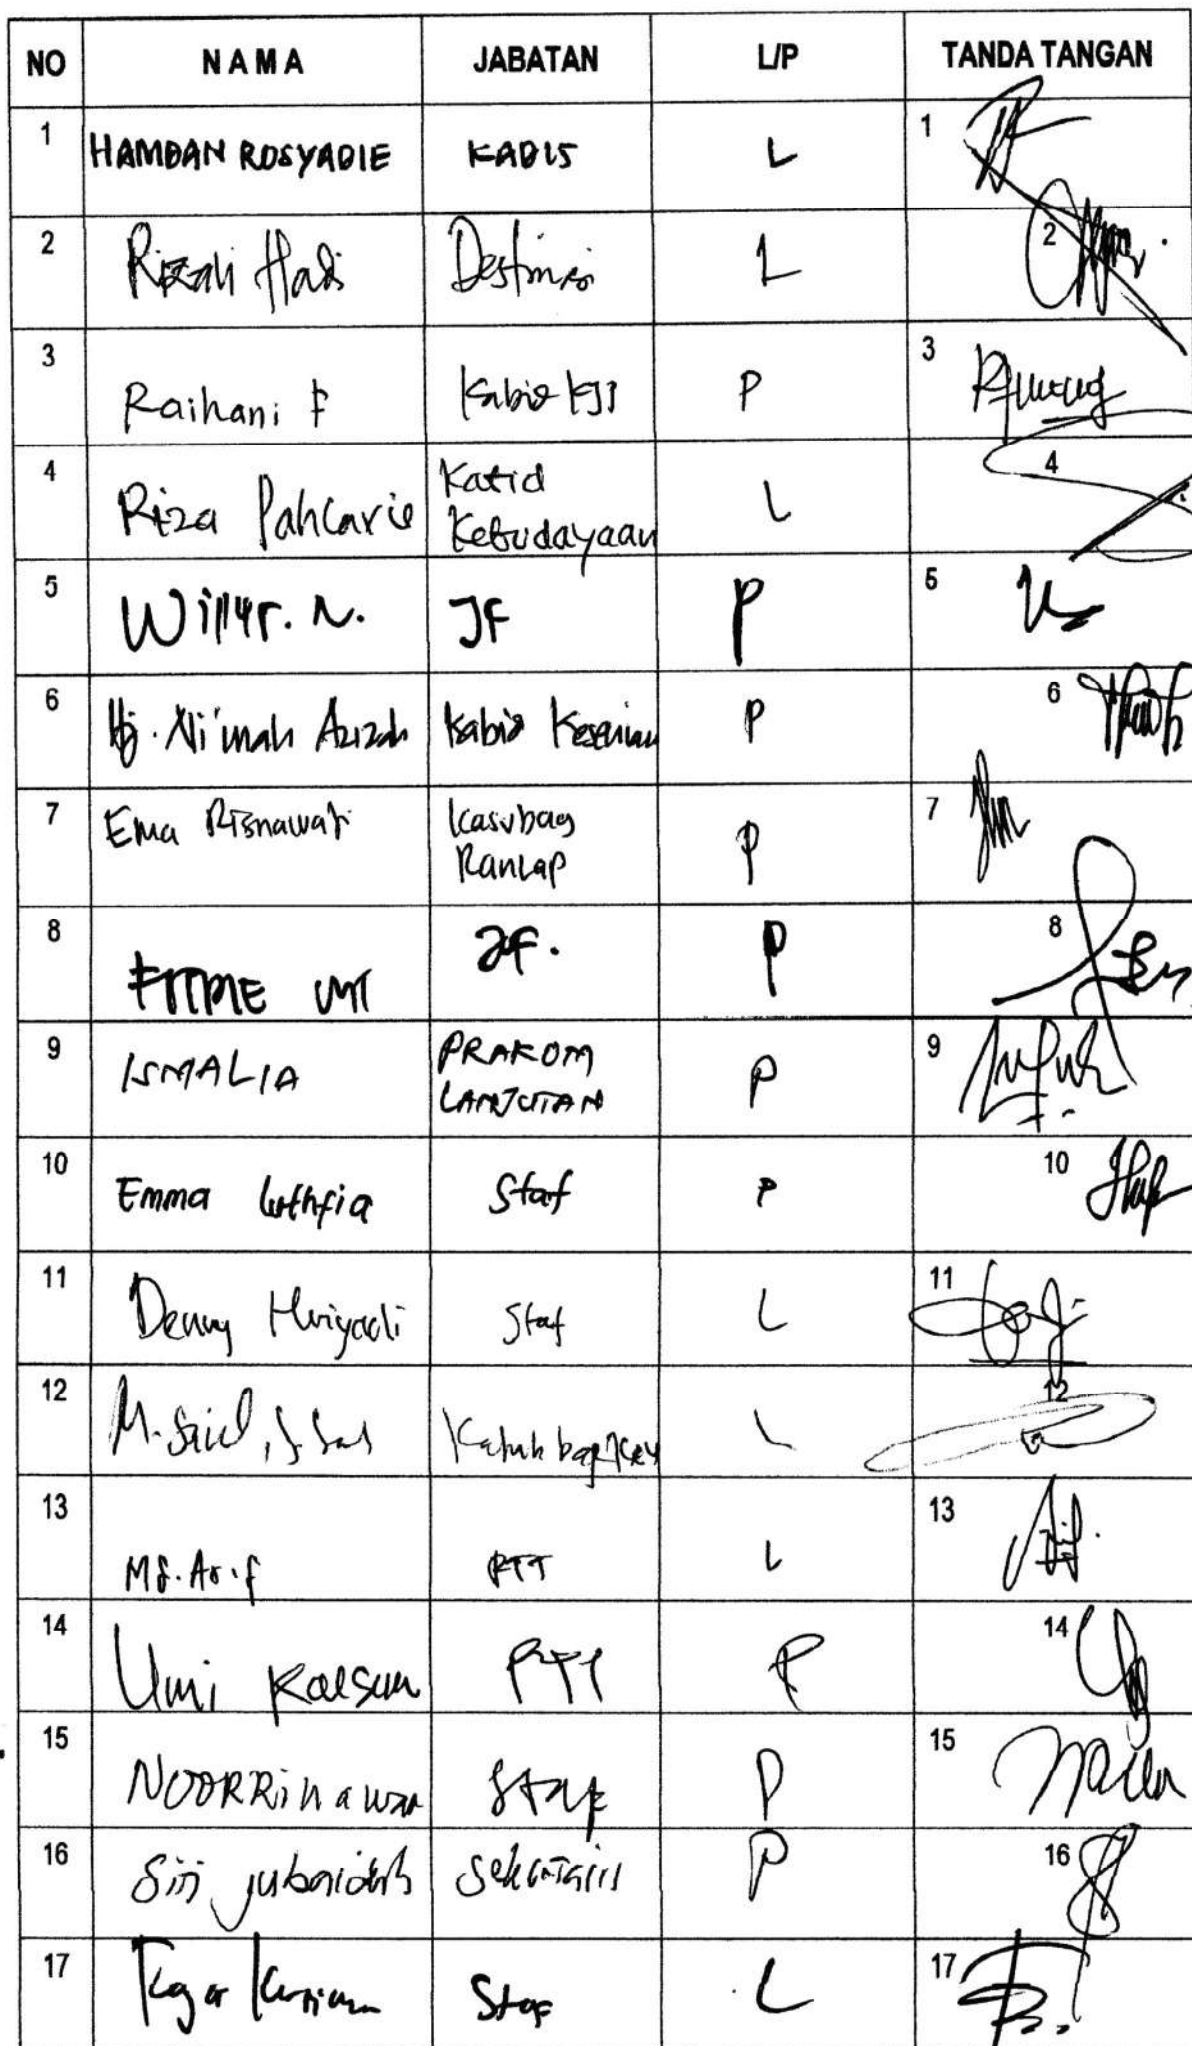 NO NAMA JABATAN L/P TANDA TANGAN
1 HAMDAN ROSYADIE KADIS L 1
2 Rizali Hadi L 2
3 Raihani F Kabid P 3
4 Riza Pahlavie Kabid L 4
Kebudayaan
5 Willy r. N. JF P 5
6 Hj. Ni'mah Azizah Kabid Kesenian P 6
7 Ema Risnawati Kasubag P 7
Ranlap
8 JF. P 8
9 ISMALIA PRAKOM P 9
LANJUTAN
10 Emma Luthfia Staf P 10
11 Denny Hariyadi Staf L 11
12 M. Said, L 12
13 Md. Arif PTT L 13
14 Umi Kalsum PTT P 14
15 Staf P 15
16 Siti Jubaidah Sekretaris P 16
17 Staf L 17